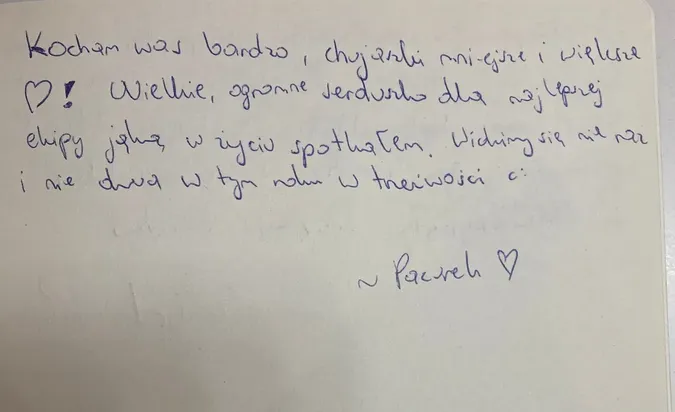 Kocham was bardzo, chujaszki mniejsze i większe
♡! Wielkie, ogromne serduszko dla najlepszej
ekipy jaką w życiu spotkałem. Widzimy się nie raz
i nie dwa w tym roku w trzeźwości c:
~ Pacurek ♡